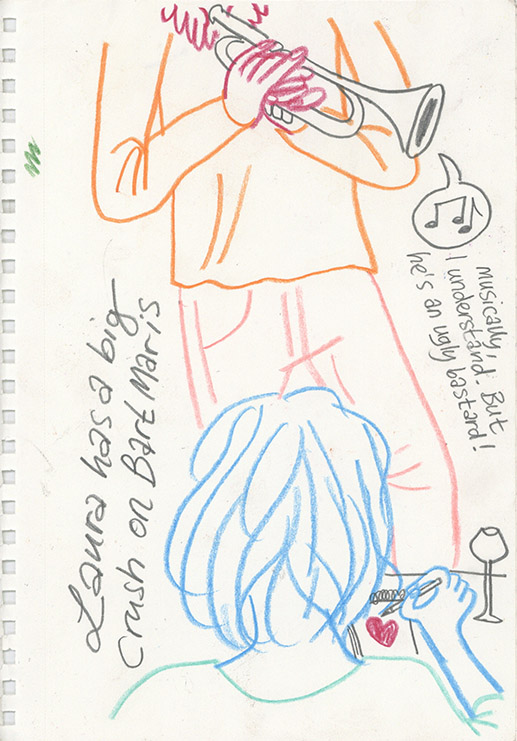 Laura has a big
crush on Bart Maris
musically,
I understand. But
he's an ugly bastard!